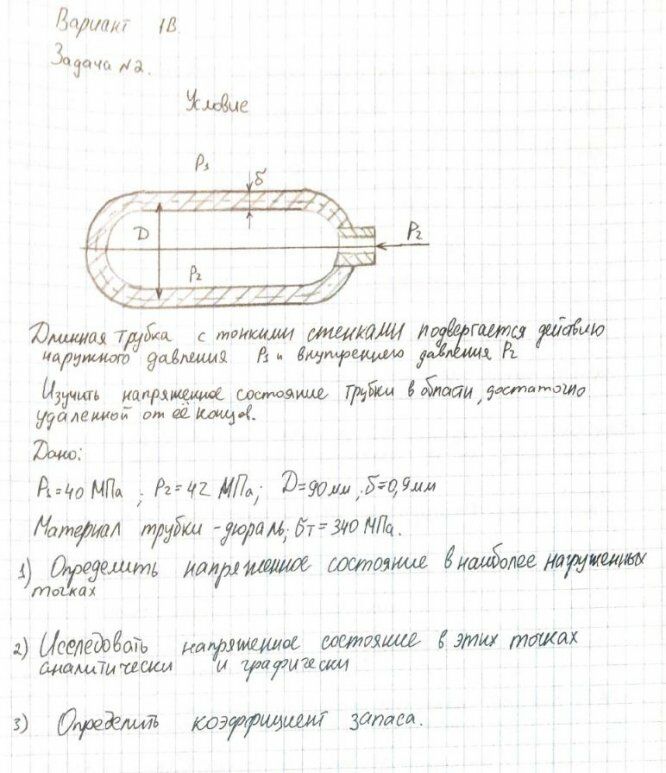 Вариант 1В.
Задача №2.
Условие
P₁
δ
D
P₂
P₂
Длинная трубка с тонкими стенками подвергается действию
наружного давления P₁ и внутреннего давления P₂
Изучить напряженное состояние трубки в области, достаточно
удаленной от её концов.
Дано:
P₁=40 МПа ; P₂=42 МПа; D=90мм; δ=0,9мм
Материал трубки - дюраль; σт=340 МПа.
1) Определить напряженное состояние в наиболее нагруженных
точках
2) Исследовать напряженное состояние в этих точках
аналитически и графически
3) Определить коэффициент запаса.